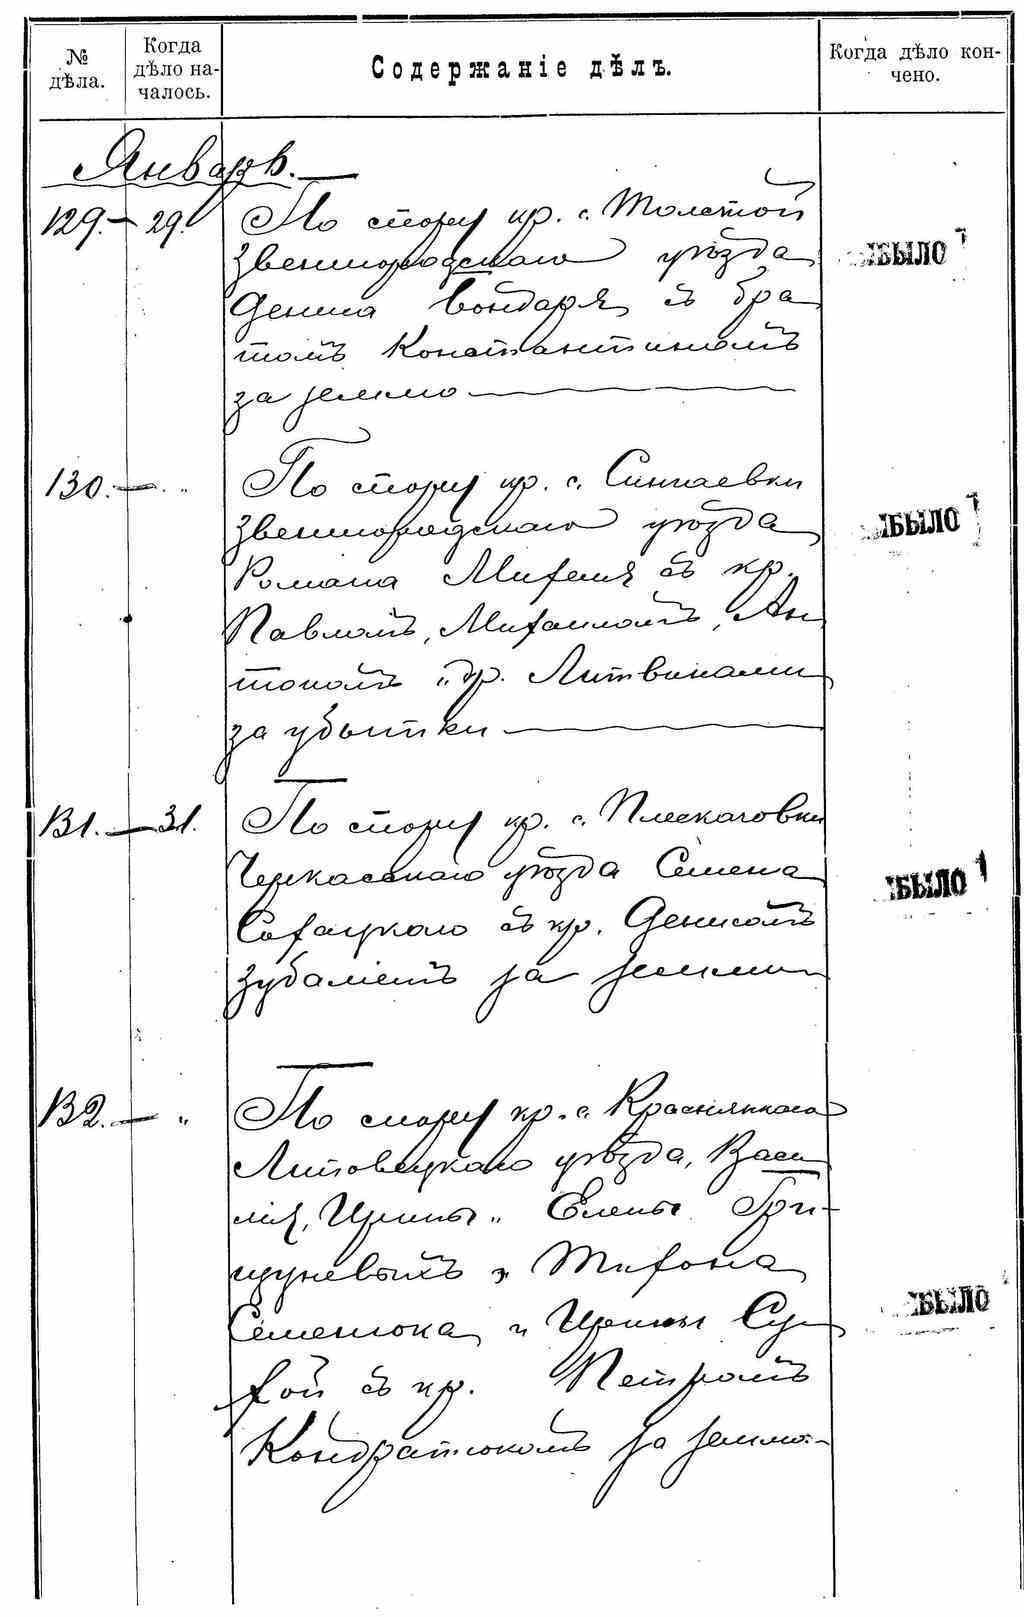 № дѣла.
Когда дѣло на-
чалось.
Содержаніе дѣлъ.
Когда дѣло кон-
чено.
Январь.
129. 29. По спору кр. с. Толстой
Звенигородскаго уѣзда
Дениса Бондаря съ бра
томъ Константиномъ
за землю
ЫБЫЛО
130. — „ По спору кр. с.
Звенигородскаго уѣзда
Романа Михеля съ кр.
Павломъ, Михаиломъ, Ан
тономъ и др. Литвинами
за убытки
ЫБЫЛО
131. — 31. По спору кр. с. Плескачовки
Черкасскаго уѣзда Семена
съ кр. Денисомъ
за землю
ЫБЫЛО
132. — „ По спору кр. с.
Липовецкаго уѣзда, Васи
лія, Ирины и Елены Гри-
цуневыхъ и Тихона
Семенюка и Ирины Су
хой съ кр. Петромъ
Кондратюкомъ за землю.
ЫБЫЛО